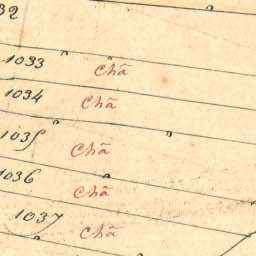 32
1033 Chã
1034 Chã
1035 Chã
1036 Chã
1037 Chã